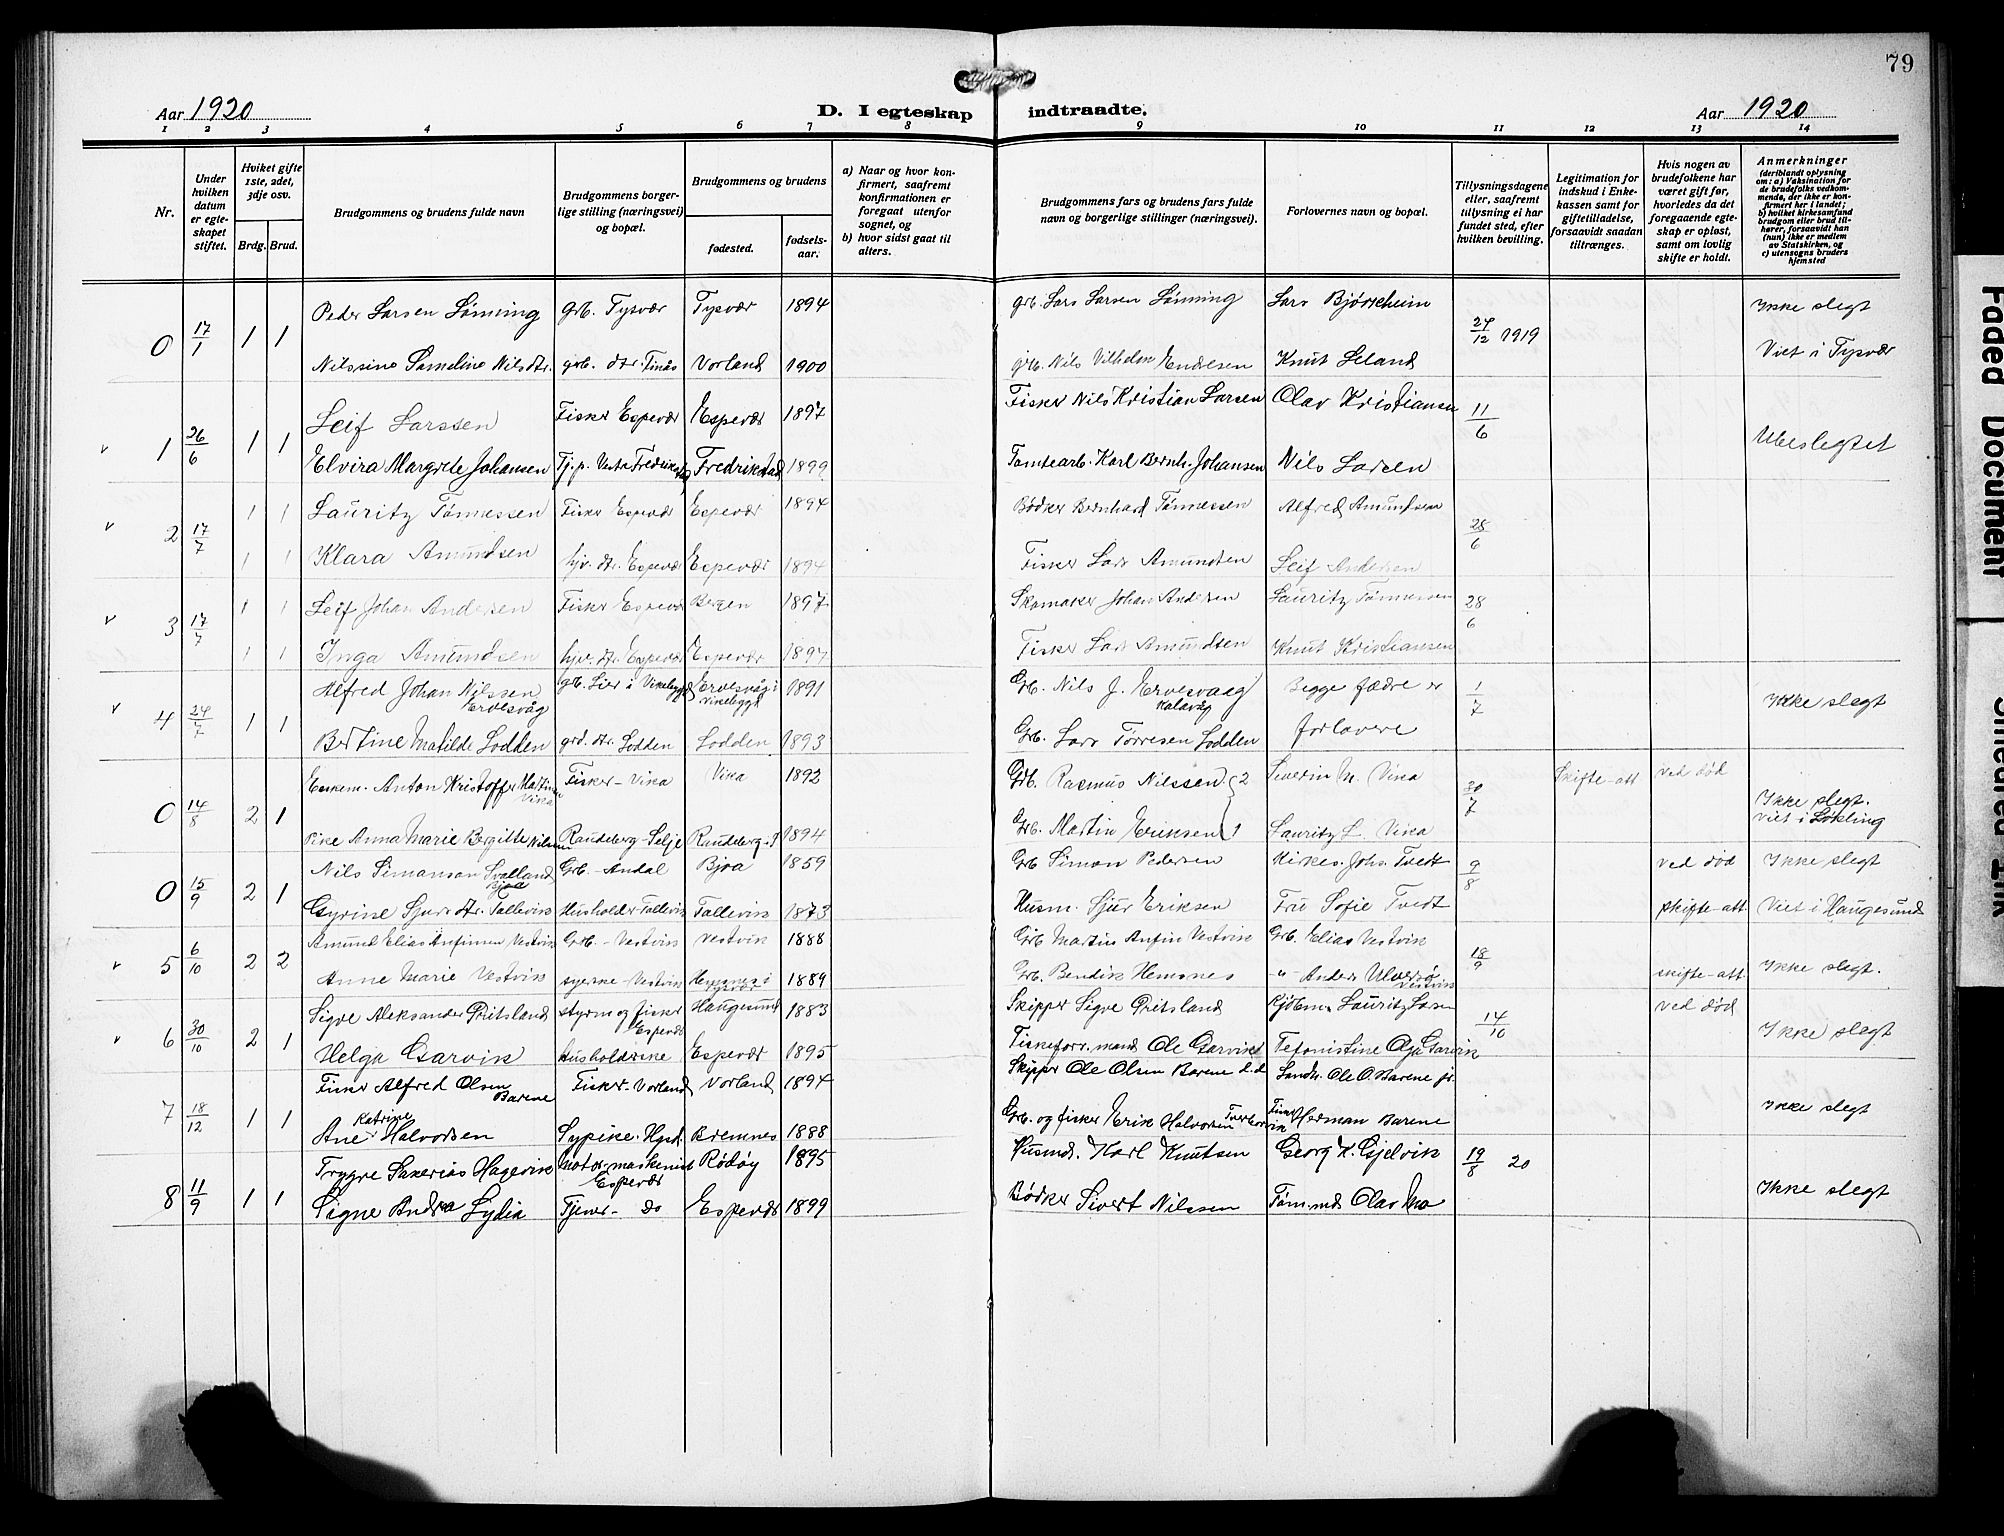 79
Aar 1920
D. I egteskap indtraadte.
Aar 1920
1 2 3 4 5 6 7 8 9 10 11 12 13 14
Nr.
Under hvilken datum er egteskapet stiftet.
Hvilket gifte 1ste, 2det, 3dje osv.
Brdg. Brud.
Brudgommens og brudens fulde navn
Brudgommens borgerlige stilling (næringsvei) og bopæl.
Brudgommens og brudens
fødested.
fødselsaar.
a) Naar og hvor konfirmert, saafremt konfirmationen er foregaat utenfor sognet, og
b) hvor sidst gaat til alters.
Brudgommens fars og brudens fars fulde navn og borgerlige stillinger (næringsvei).
Forlovernes navn og bopæl.
Tillysningsdagene eller, saafremt tillysning ei har fundet sted, efter hvilken bevilling.
Legitimation for indskud i Enkekassen samt for giftetilladelse, forsaavidt saadan tiltrænges.
Hvis nogen av brudefolkene har været gift før, hvorledes da det foregaaende egteskap er opløst, samt om lovlig skifte er holdt.
Anmerkninger (deriblandt oplysning om: a) Vaksination for de brudefolks vedkommende, der ikke er konfirmert her i landet; b) hvilket kirkesamfund brudgom eller brud tilhører, forsaavidt han (hun) ikke er medlem av Statskirken, og c) utensogns bruders hjemsted
0 17/1 1 1 Peder Larsen Lønning grb. Tysvær Tysvær 1894 grb. Lars Larsen Lønning Lars Bjørkheim 24/12 1919 Ikke slegt
Nilssine Sameline Nilsdtr. grb. dtr. Finås Vorland 1900 grb. Nils Vilhelm Endresen Knut Leland Viet i Tysvær
1 26/6 1 1 Leif Larssen Fisker Espevær Espevær 1897 Fisker Nils Kristian Larsen Olav Kristiansen 11/6 Ubeslegtet
Elvira Margrete Johansen Tj.p. Fredrikstad 1899 Tomtearb. Karl Bernh. Johansen Nils Larsen
2 17/7 1 1 Lauritz Tønnessen Fisker Espevær Espevær 1894 Bødker Bernhard Tønnessen Alfred Amundsen 28/6
1 1 Klara Amundsen hjv. dtr. Espevær Espevær 1894 Fisker Lars Amundsen Leif Andersen
3 17/7 1 1 Leif Johan Andersen Fisker Espevær Bergen 1897 Skomaker Johan Andersen Lauritz Tønnessen 28/6
1 1 Inga Amundsen hjv. dtr. Espevær Espevær 1897 Fisker Lars Amundsen Knut Kristiansen
4 24/7 1 1 Alfred Johan Nilssen Ervesvåg grb. Lier i Vikebygd Ervesvåg i Vikebygd 1891 Grb. Nils J. Ervesvaag Begge fædre er 1/7 Ikke slegt
Bertine Matilde Lodden grd. dtr. Lodden Lodden 1893 Grb. Lars Torresen Lodden forlovere
0 14/8 2 1 Enkem. Anton Kristoffer Martin Vika Fisker - Vika Vika 1892 Grb. Rasmus Nilssen 2 Severin M. Vika 30/7 Skifte-att ved død
Pike Anna Marie Bergitte Nilsen Raudeberg - Selje Raudeberg - S 1894 Grb. Martin Eriksen 1 Lauritz L. Vika Ikke slegt. viet i Løkling
0 15/9 2 1 Nils Simonson Svalland Bjoa Grb. - Andal Bjoa 1859 Grb Simon Pedersen Kirkes. Johs. Tvedt 9/8 ved død Ikke slegt
Gyrine Sjursdtr. Tallevik Husholder Tallevik Tallevik 1873 Husm. Sjur Eriksen Fru Sofie Tvedt skifte-att Viet i Haugesund
5 6/10 2 2 Amund Elias Anfinnsen Vestvik Grb. - Vestvik Vestvik 1888 Grb Martin Anfin Vestvik Grb. Elias Vestvik 18/9
Anne Marie Vestvik Vestvik 1889 Grb. Bendik Hemnes -"- Anders Vestvik skifte-att Ikke slegt.
6 30/10 2 1 Sigve Aleksander Pritsland styrm og fisker Espevær Haugesund 1883 Skipper Sigve Pritsland Kjøbm. Lauritz Larsen 14/10 ved død
Helga Garvik Husholderske Espevær 1895 Fiskeforr.mand Ole Garvik Olga Garvik Ikke slegt
7 18/12 1 1 Fisker Alfred Olsen Barene Fisker. Vorland Vorland 1894 Skipper Ole Olsen Barene Landh. Ole O. Barene jr.
Ane Katrine Halvorsen Sypike. Bremnes 1888 Grb. og fisker Erik Halvorsen Herman Barene Ikke slegt
8 11/9 1 1 Trygve Sakerias Hagevik Motormaskinist Espevær Rödøy 1895 Husmd. Karl Knutsen Georg K. Gjelvik 19/8 20
Signe Andrea Lydia Tjener - do Espevær 1899 Bødker Sivert Nilssen Tøm.md. Olav Mo Ikke slegt
Faded Document
Smeared Ink